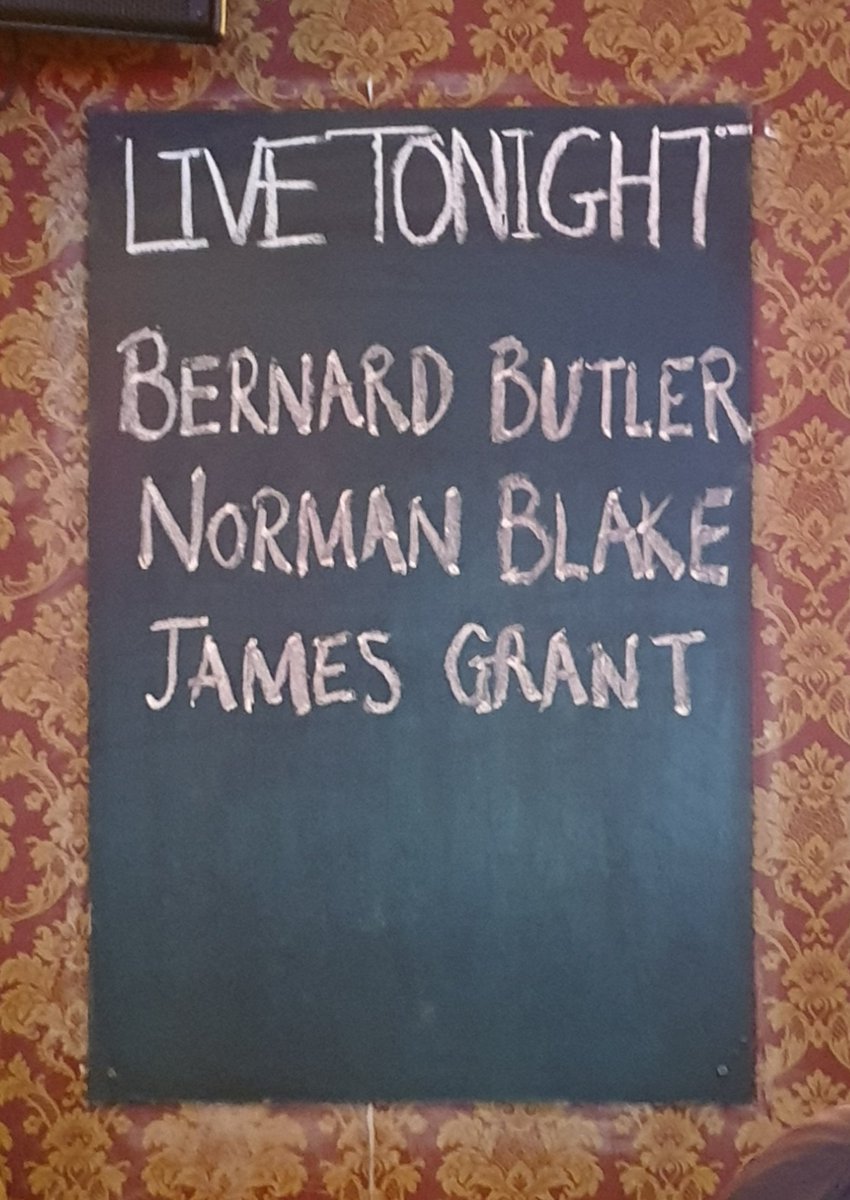 LIVE TONIGHT
BERNARD BUTLER
NORMAN BLAKE
JAMES GRANT